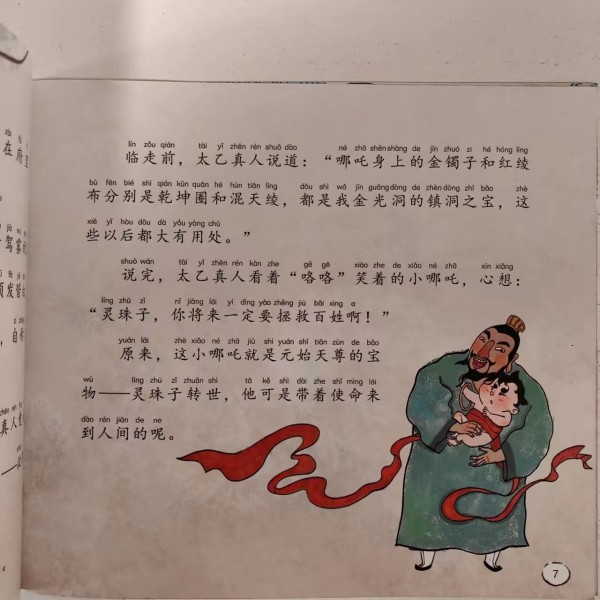 lín zǒu qián tài yǐ zhēn rén shuō dào né zhā shēn shàng de jīn zhuó zi hé hóng líng
临走前，太乙真人说道：“哪吒身上的金镯子和红绫
bù fēn bié shì qián kūn quān hé hùn tiān líng dōu shì wǒ jīn guāng dòng de zhèn dòng zhī bǎo zhè
布分别是乾坤圈和混天绫，都是我金光洞的镇洞之宝，这
xiē yǐ hòu dōu dà yǒu yòng chù
些以后都大有用处。”
shuō wán tài yǐ zhēn rén kàn zhe gē gē xiào zhe de xiǎo né zhā xīn xiǎng
说完，太乙真人看着“咯咯”笑着的小哪吒，心想：
líng zhū zǐ nǐ jiāng lái yí dìng yào zhěng jiù bǎi xìng a
“灵珠子，你将来一定要拯救百姓啊！”
yuán lái zhè xiǎo né zhā jiù shì yuán shǐ tiān zūn de bǎo
原来，这小哪吒就是元始天尊的宝
wù líng zhū zǐ zhuǎn shì tā kě shì dài zhe shǐ mìng lái
物——灵珠子转世，他可是带着使命来
dào rén jiān de ne
到人间的呢。
7